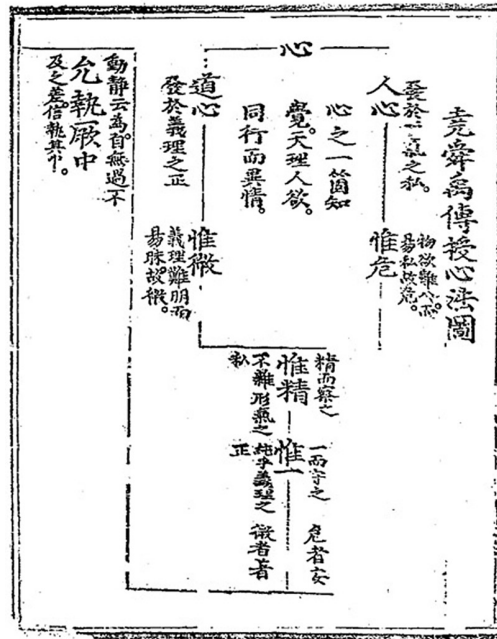 堯舜禹傳授心法圖
心
人心
發於氣之私。
惟危
物欲難公而
易私故危。
心之一箇知
覺。天理人欲。
同行而異情。
道心
發於義理之正
惟微
義理難明而
易昧。故微。
精而察之
惟精
不雜形氣之
私
一而守之
惟一
純乎義理之
正
危者安
微者著
動靜云為。自無過不
允執厥中
及之差。信執其中。